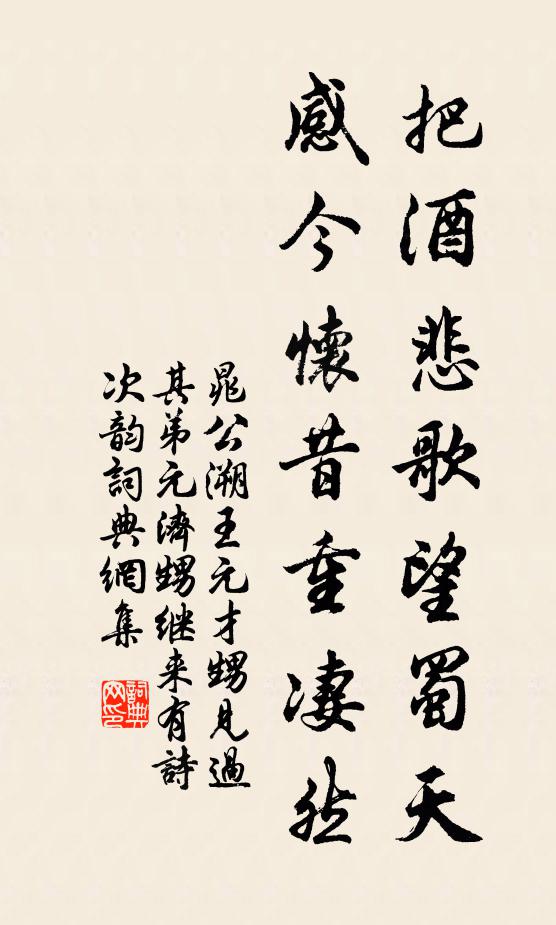 把酒悲歌望蜀天
感今懷昔重凄然
晁公溯王元才甥見過
其弟元濟甥継来有詩
次韵詞典網集
詞典网印